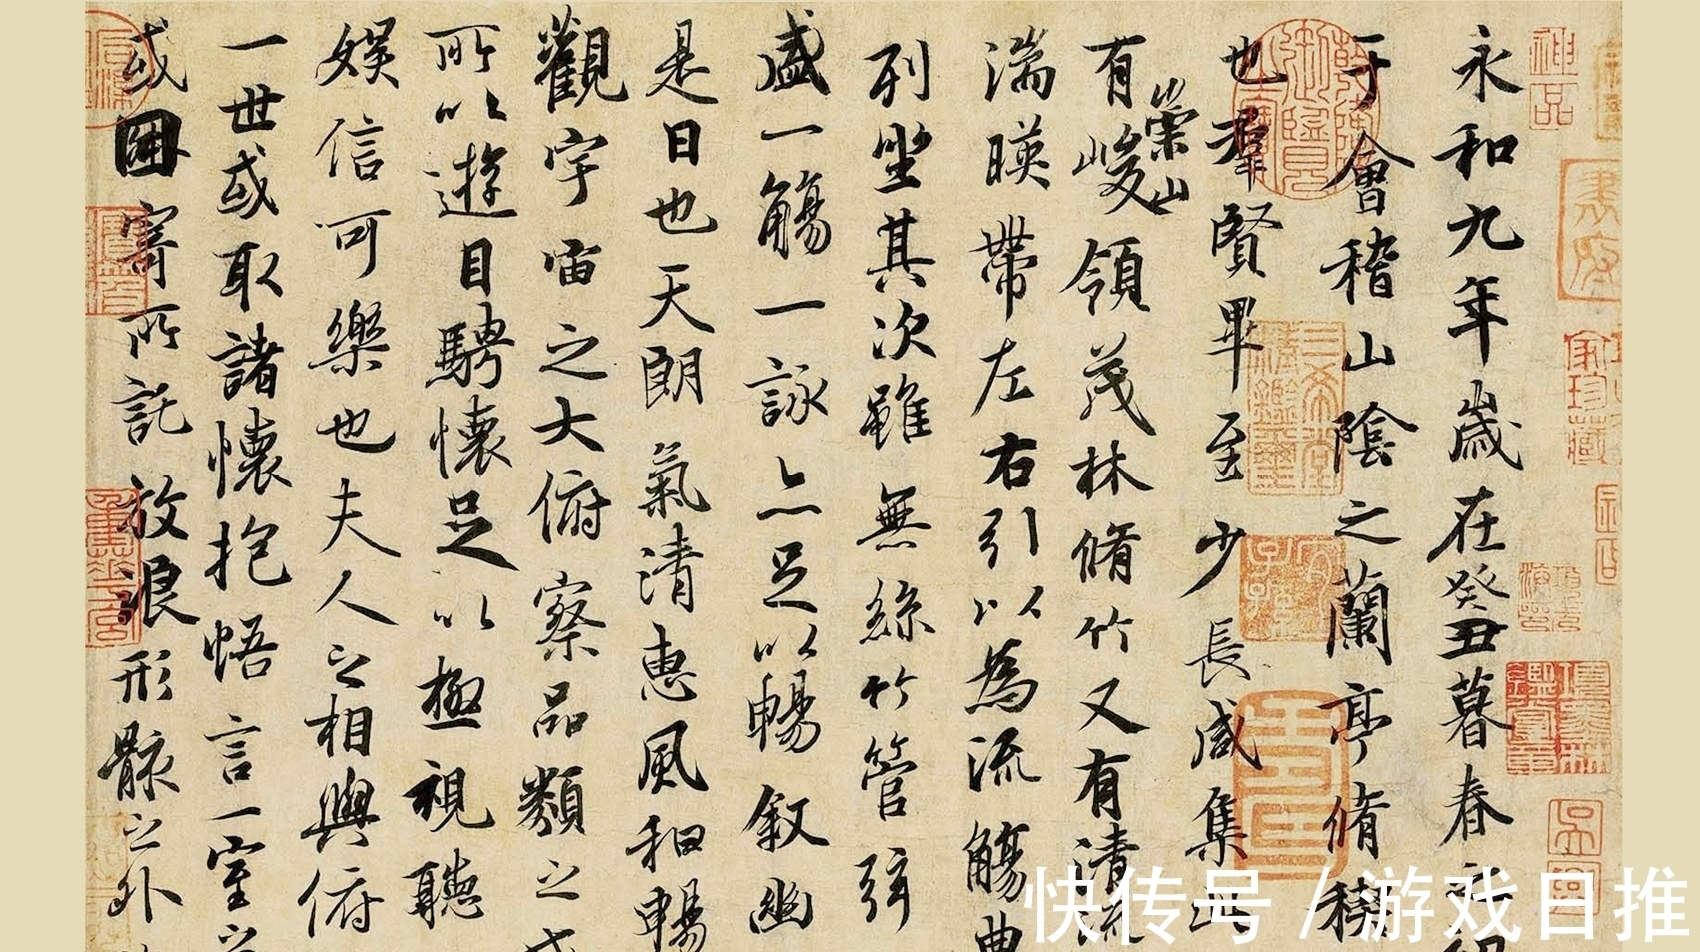 永和九年歲在癸丑暮春
于會稽山陰之蘭亭脩禊
也羣賢畢至少長咸集此
有崇山峻領茂林脩竹又有清流
湍暎帶左右引以為流觴曲
列坐其次雖無絲竹管弦
盛一觴一詠亦足以暢叙幽
是日也天朗氣清惠風和暢
觀宇宙之大俯察品類之盛
所以遊目騁懷足以極視聽
娛信可樂也夫人之相與俯
一世或取諸懷抱悟言一室之
或因寄所託放浪形骸之外
神品
快传号/游戏日推